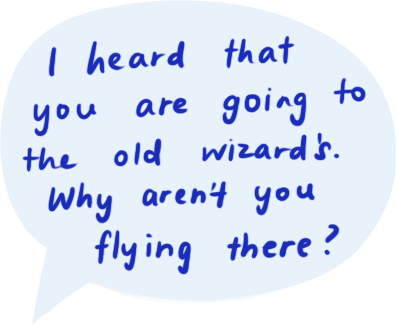 I heard that
you are going to
the old wizard's.
Why aren't you
flying there?